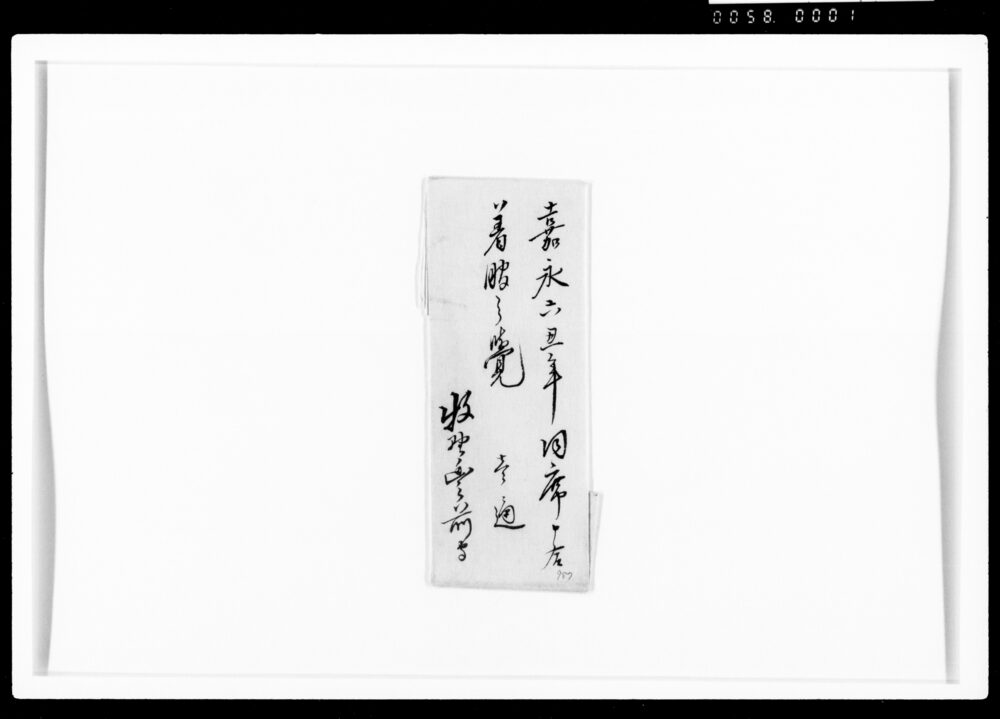 0058. 0001
嘉永六丑年同席
着服之覚
壱通
牧野豊前守